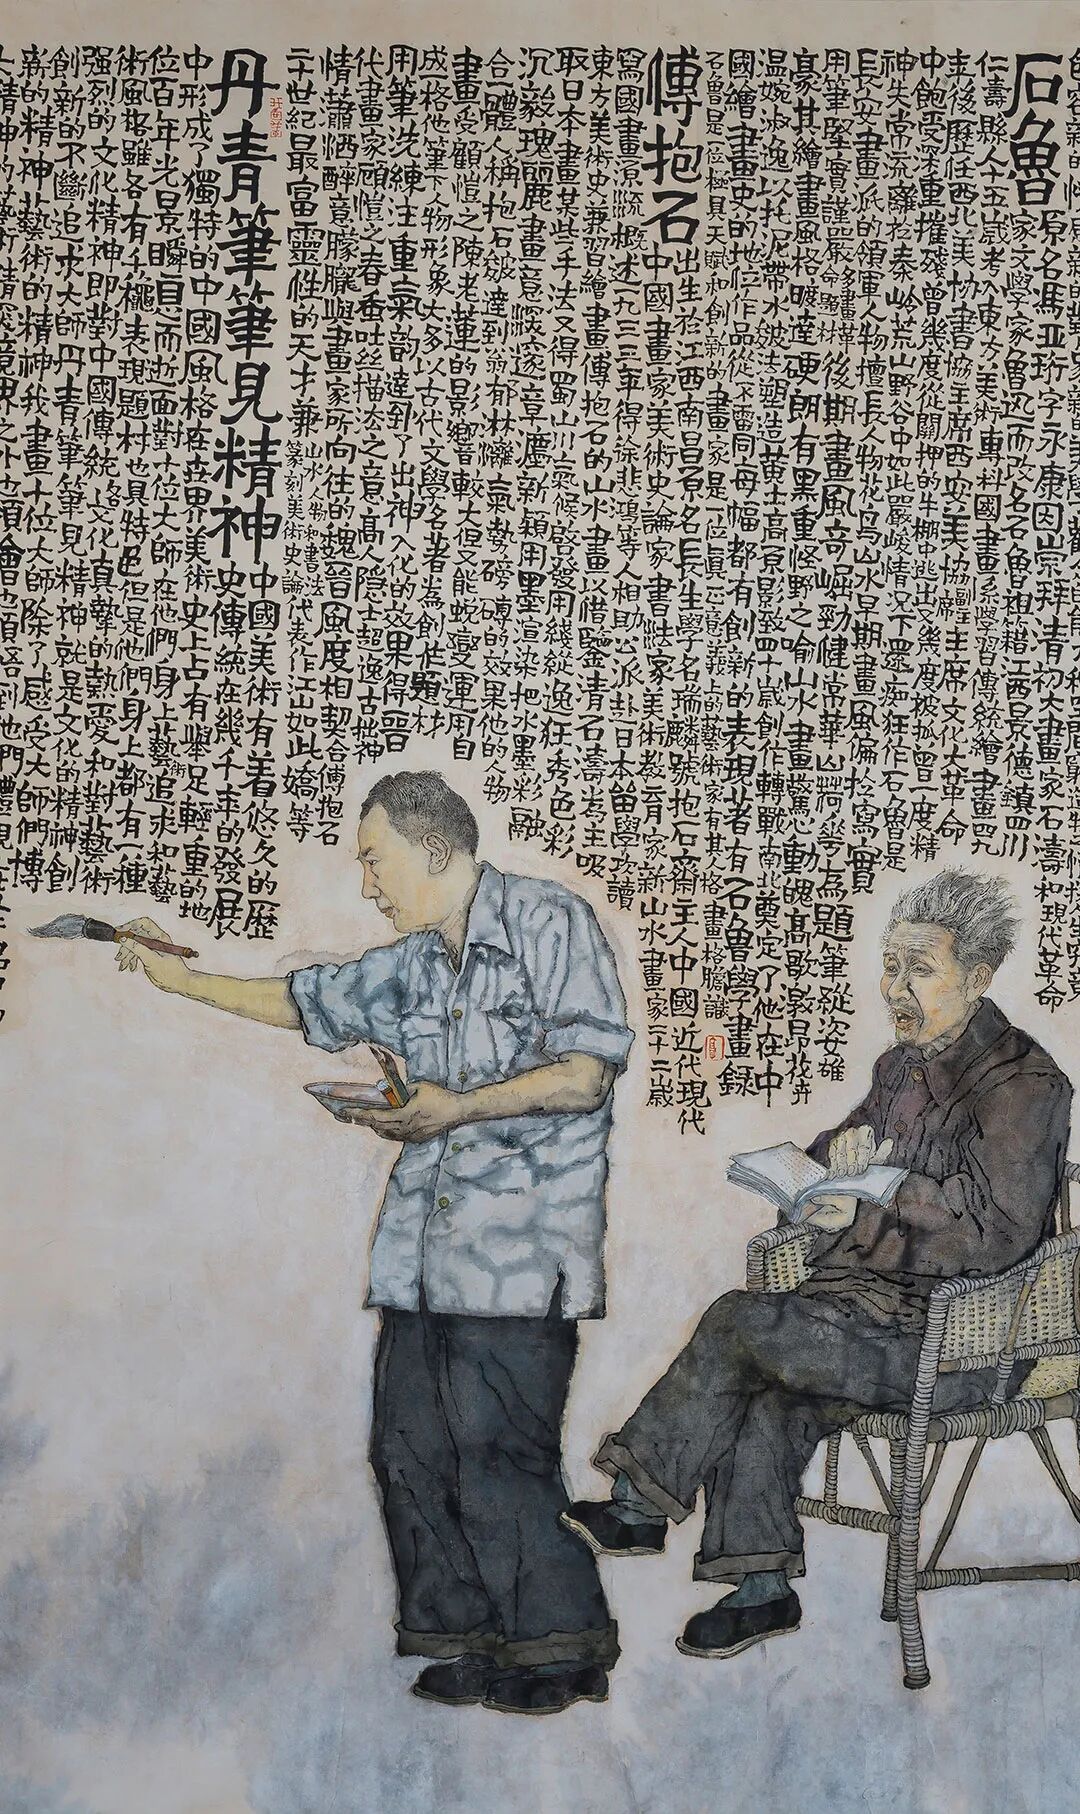 石魯 原名馮亞珩字永康因崇拜清初大畫家石濤和現代革命
家文學家魯迅而改名石魯祖籍江西景德鎮四川
仁壽縣人十五歲考入東方美術專科國畫系學習傳統繪畫四九
年後歷任西北美協書協主席西安美協副主席文化大革命
中飽受深重摧殘曾幾度從關押的牛棚中逃出又幾度被抓曾一度精
神失常流離於秦岭荒山野谷中如此嚴峻情況下還痴狂作石魯是
長安畫派的領軍人物擅長人物花鳥山水早期畫風偏於寫實
用筆堅實謹嚴多畫革命題材後期畫風奇崛勁健常華山荷花為題筆縱姿雄
豪其繪畫風格曠達硬朗有黑重怪野之喻山水畫驚心動魄高歌激昂花卉
温婉淑逸以拖泥帶水皴法塑造黄土高原景致四十歲創作轉戰南北奠定了他在中
國繪畫史的地位作品從不雷同每幅都有創新的表現著有石魯學畫録
石魯是一位極具天賦和創新的畫家是一位真正意義上的藝術家有其人格畫格膽識
傅抱石 出生於江西南昌原名長生學名瑞麟號抱石齋主人中國近代現代
中國畫家美術史論家書法家美術教育家新山水畫家二十二歲
寫國畫源流概述一九三三年得徐悲鴻等人相助公派赴日本留學攻讀
東方美術史兼習繪畫傅抱石的山水畫以借鑒清石濤為主吸
取日本畫某些手法又得蜀山川氣候啓發用綫縱逸狂秀色彩
沉毅瑰麗畫意深邃章法新穎用墨渲染把水墨彩融
合一體人稱抱石皴達到翁郁林灕氣勢磅礴的效果他的人物
畫受顧愷之陳老蓮的影響較大但又能蜕變運用自
成一格他筆下人物形象大多以古代文學名著為創作題材
用筆洗練注重氣韵達到了出神入化的效果得晉
代畫家顧愷之春蚕吐丝描法之意高人隱士超逸古拙神
情蕭洒醉意朦朧與畫家所向往的魏晉風度相契合傅抱石
二十世紀最富靈性的天才兼山水人物和書法篆刻美術史論代表作江山如此嬌等
丹青筆筆見精神 中國美術有着悠久的歷
史傳統在幾千年的發展
中形成了獨特的中國風格在世界美術史上占有舉足輕重的地
位百年光景瞬息而逝面對十位大師在他們身上藝術追求和藝
術風格雖各有千龝表現題材也各具特色但是他們身上都有一種
强烈的文化精神即對中國傳統文化真摯的熱愛和對藝術
創新的不斷追求大師丹青筆筆見精神就是文化的精神創
新的精神藝術的精神我畫十位大師除了感受大師們博